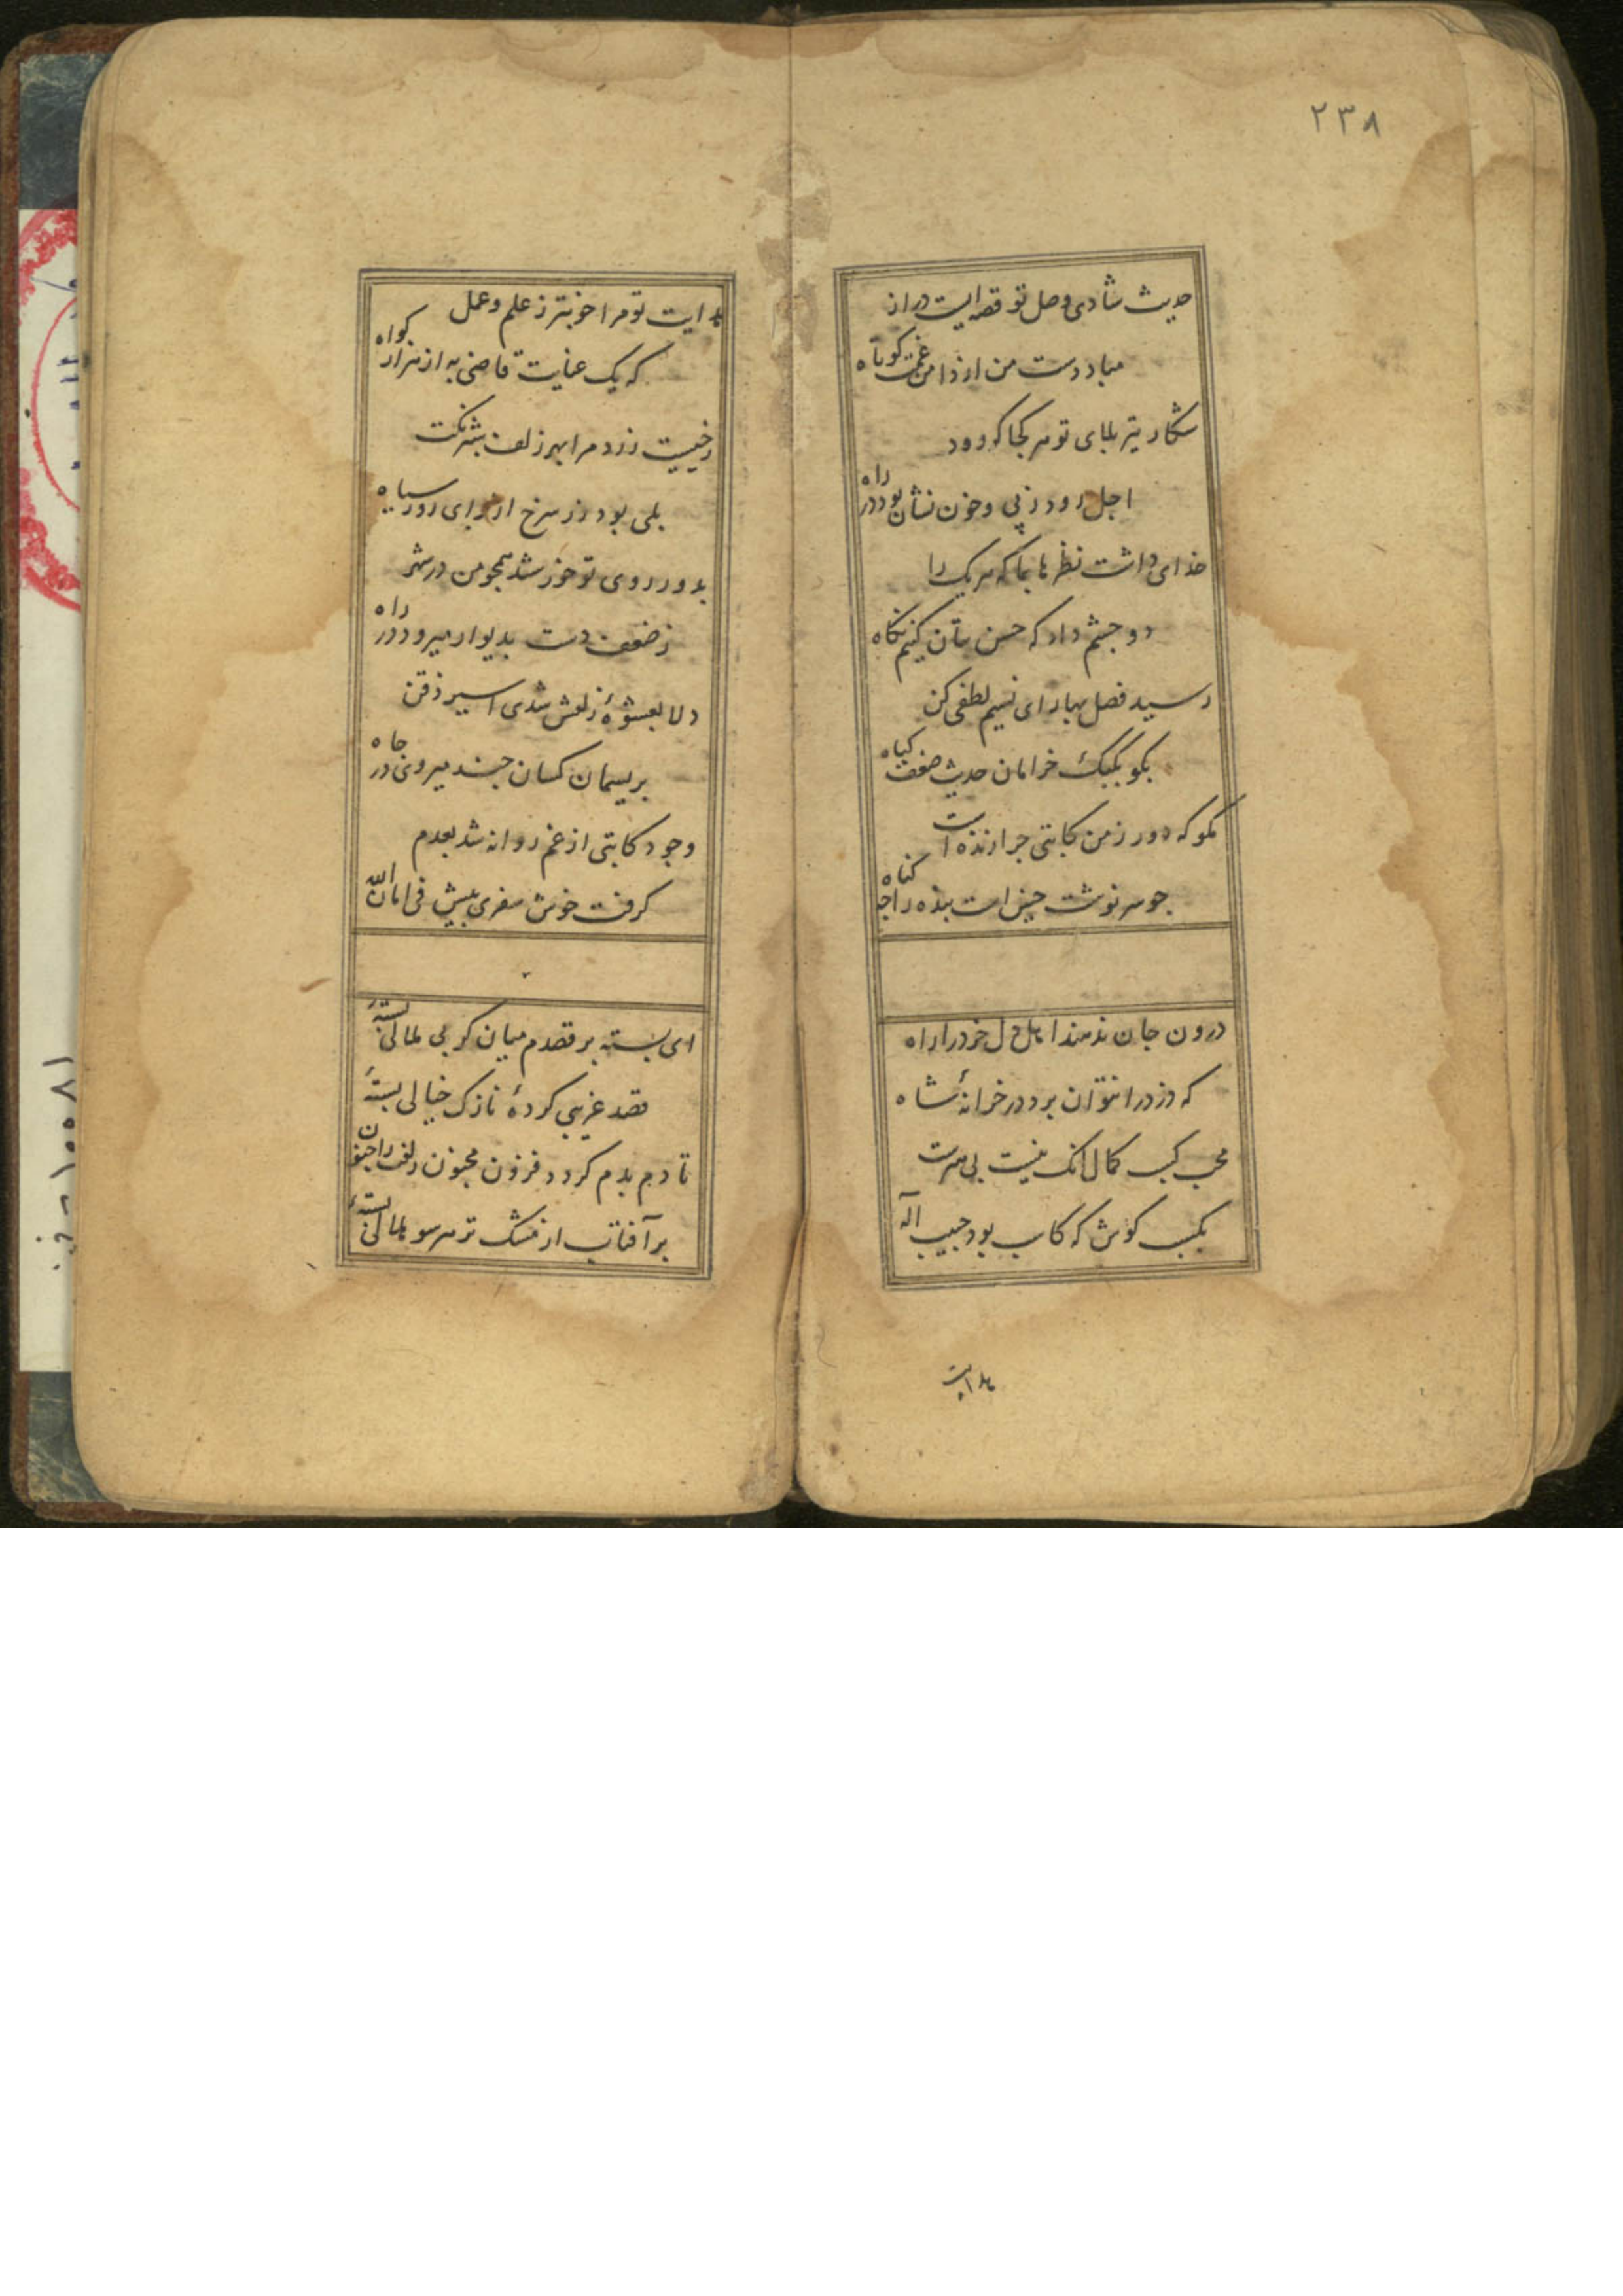 ۲۳۸
حدیث شادی وصل تو قصه ایست دراز
مباد دست من از دامن غمت کوتاه
شکار تیر بلای تو هر کجا که رود
اجل رود ز پی و خون نشان بود در راه
خدای داشت نظرها بما که هر یک را
دو چشم داد که حسن بتان کنیم نکاه
رسید فصل بهار ای نسیم لطفی کن
بکو بکبک خرامان حدیث ضعف کیاه
مکو که دور ز من کاتبی چرا زنده است
چو سرنوشت چنین است بنده را چه کناه
درون جان ندهند اهل دل خرد را راه
که دزد را نتوان برد در خزانهٔ شاه
محب کسب کمال آنک نیست بی هنرست
بکسب کوش که کاسب بود حبیب اله
هدایت
هدایت تو مرا خوبتر ز علم و عمل
که یک عنایت قاضی به از هزار کواه
رخیست زرد مرا بهر زلف بشرنکت
بلی بود زر سرخ از برای روز سیاه
بدور روی تو خورشد همچو من در شهر
ز ضعف دست بدیوار میرود در راه
دلا بعشوهٔ زلفش شدی اسیر ذقن
بریسمان کسان چند میروی در چاه
وجود کاتبی از غم روانه شد بعدم
کرفت خوش سفری پیش فی امان الله
ای بسته بر قصدم میان کر بی ملالی بستهٔ
قصد غریبی کردهٔ نازک خیالی بستهٔ
تا دم بدم کردد فزون مجنون زلفت را جنون
بر آفتاب از مشک تر هر سو هلالی بستهٔ
۱۰۵۵۸۱